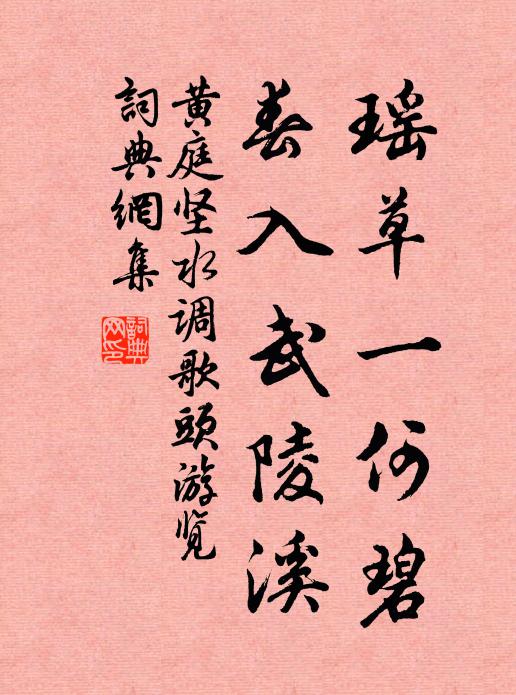 瑶草一何碧
春入武陵溪
黄庭坚水调歌頭游览
詞典網集
詞典網印